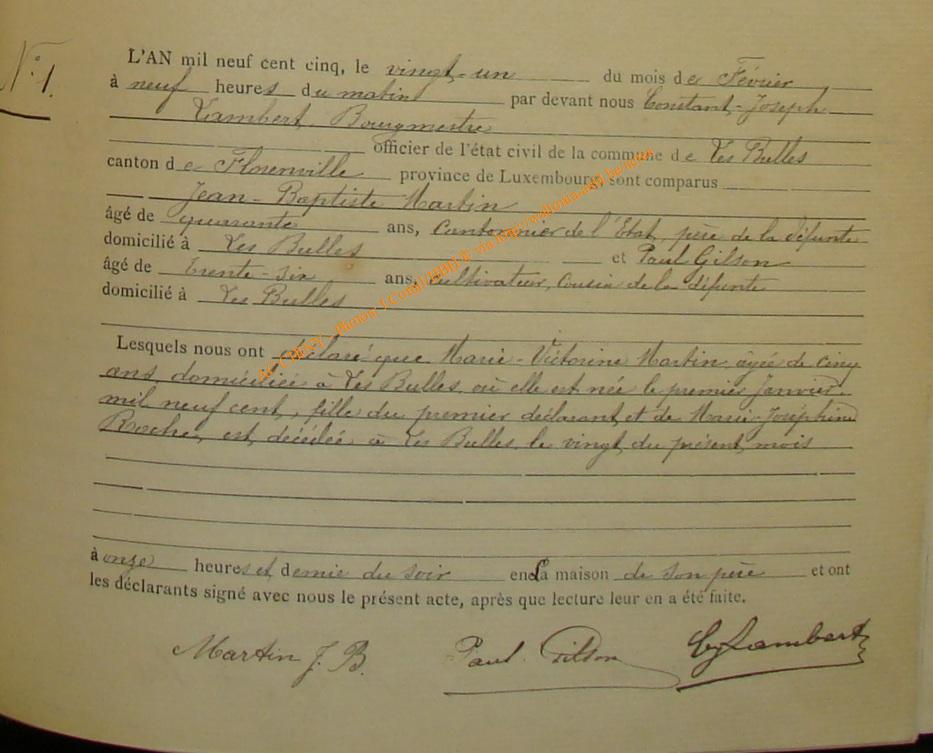 N° 1.
L'AN mil neuf cent cinq, le vingt-un du mois de Février
à neuf heures du matin par devant nous Constant-Joseph
Lambert, Bourgmestre
officier de l'état civil de la commune de Les Bulles
canton de Florenville province de Luxembourg, sont comparus
Jean-Baptiste Martin
âgé de quarante ans, Cantonnier de l'Etat, père de la défunte
domicilié à Les Bulles et Paul Gilson
âgé de trente-six ans, Cultivateur, Cousin de la défunte
domicilié à Les Bulles
Lesquels nous ont déclaré que Marie-Victorine Martin, âgée de cinq
ans, domiciliée à Les Bulles, où elle est née le premier Janvier
mil neuf cent, fille du premier déclarant et de Marie-Joséphine
Roche, est décédée à Les Bulles, le vingt du présent mois
à onze heures et demie du soir en La maison de son père et ont
les déclarants signé avec nous le présent acte, après que lecture leur en a été faite.
Martin J. B. Paul Gilson CJLambert